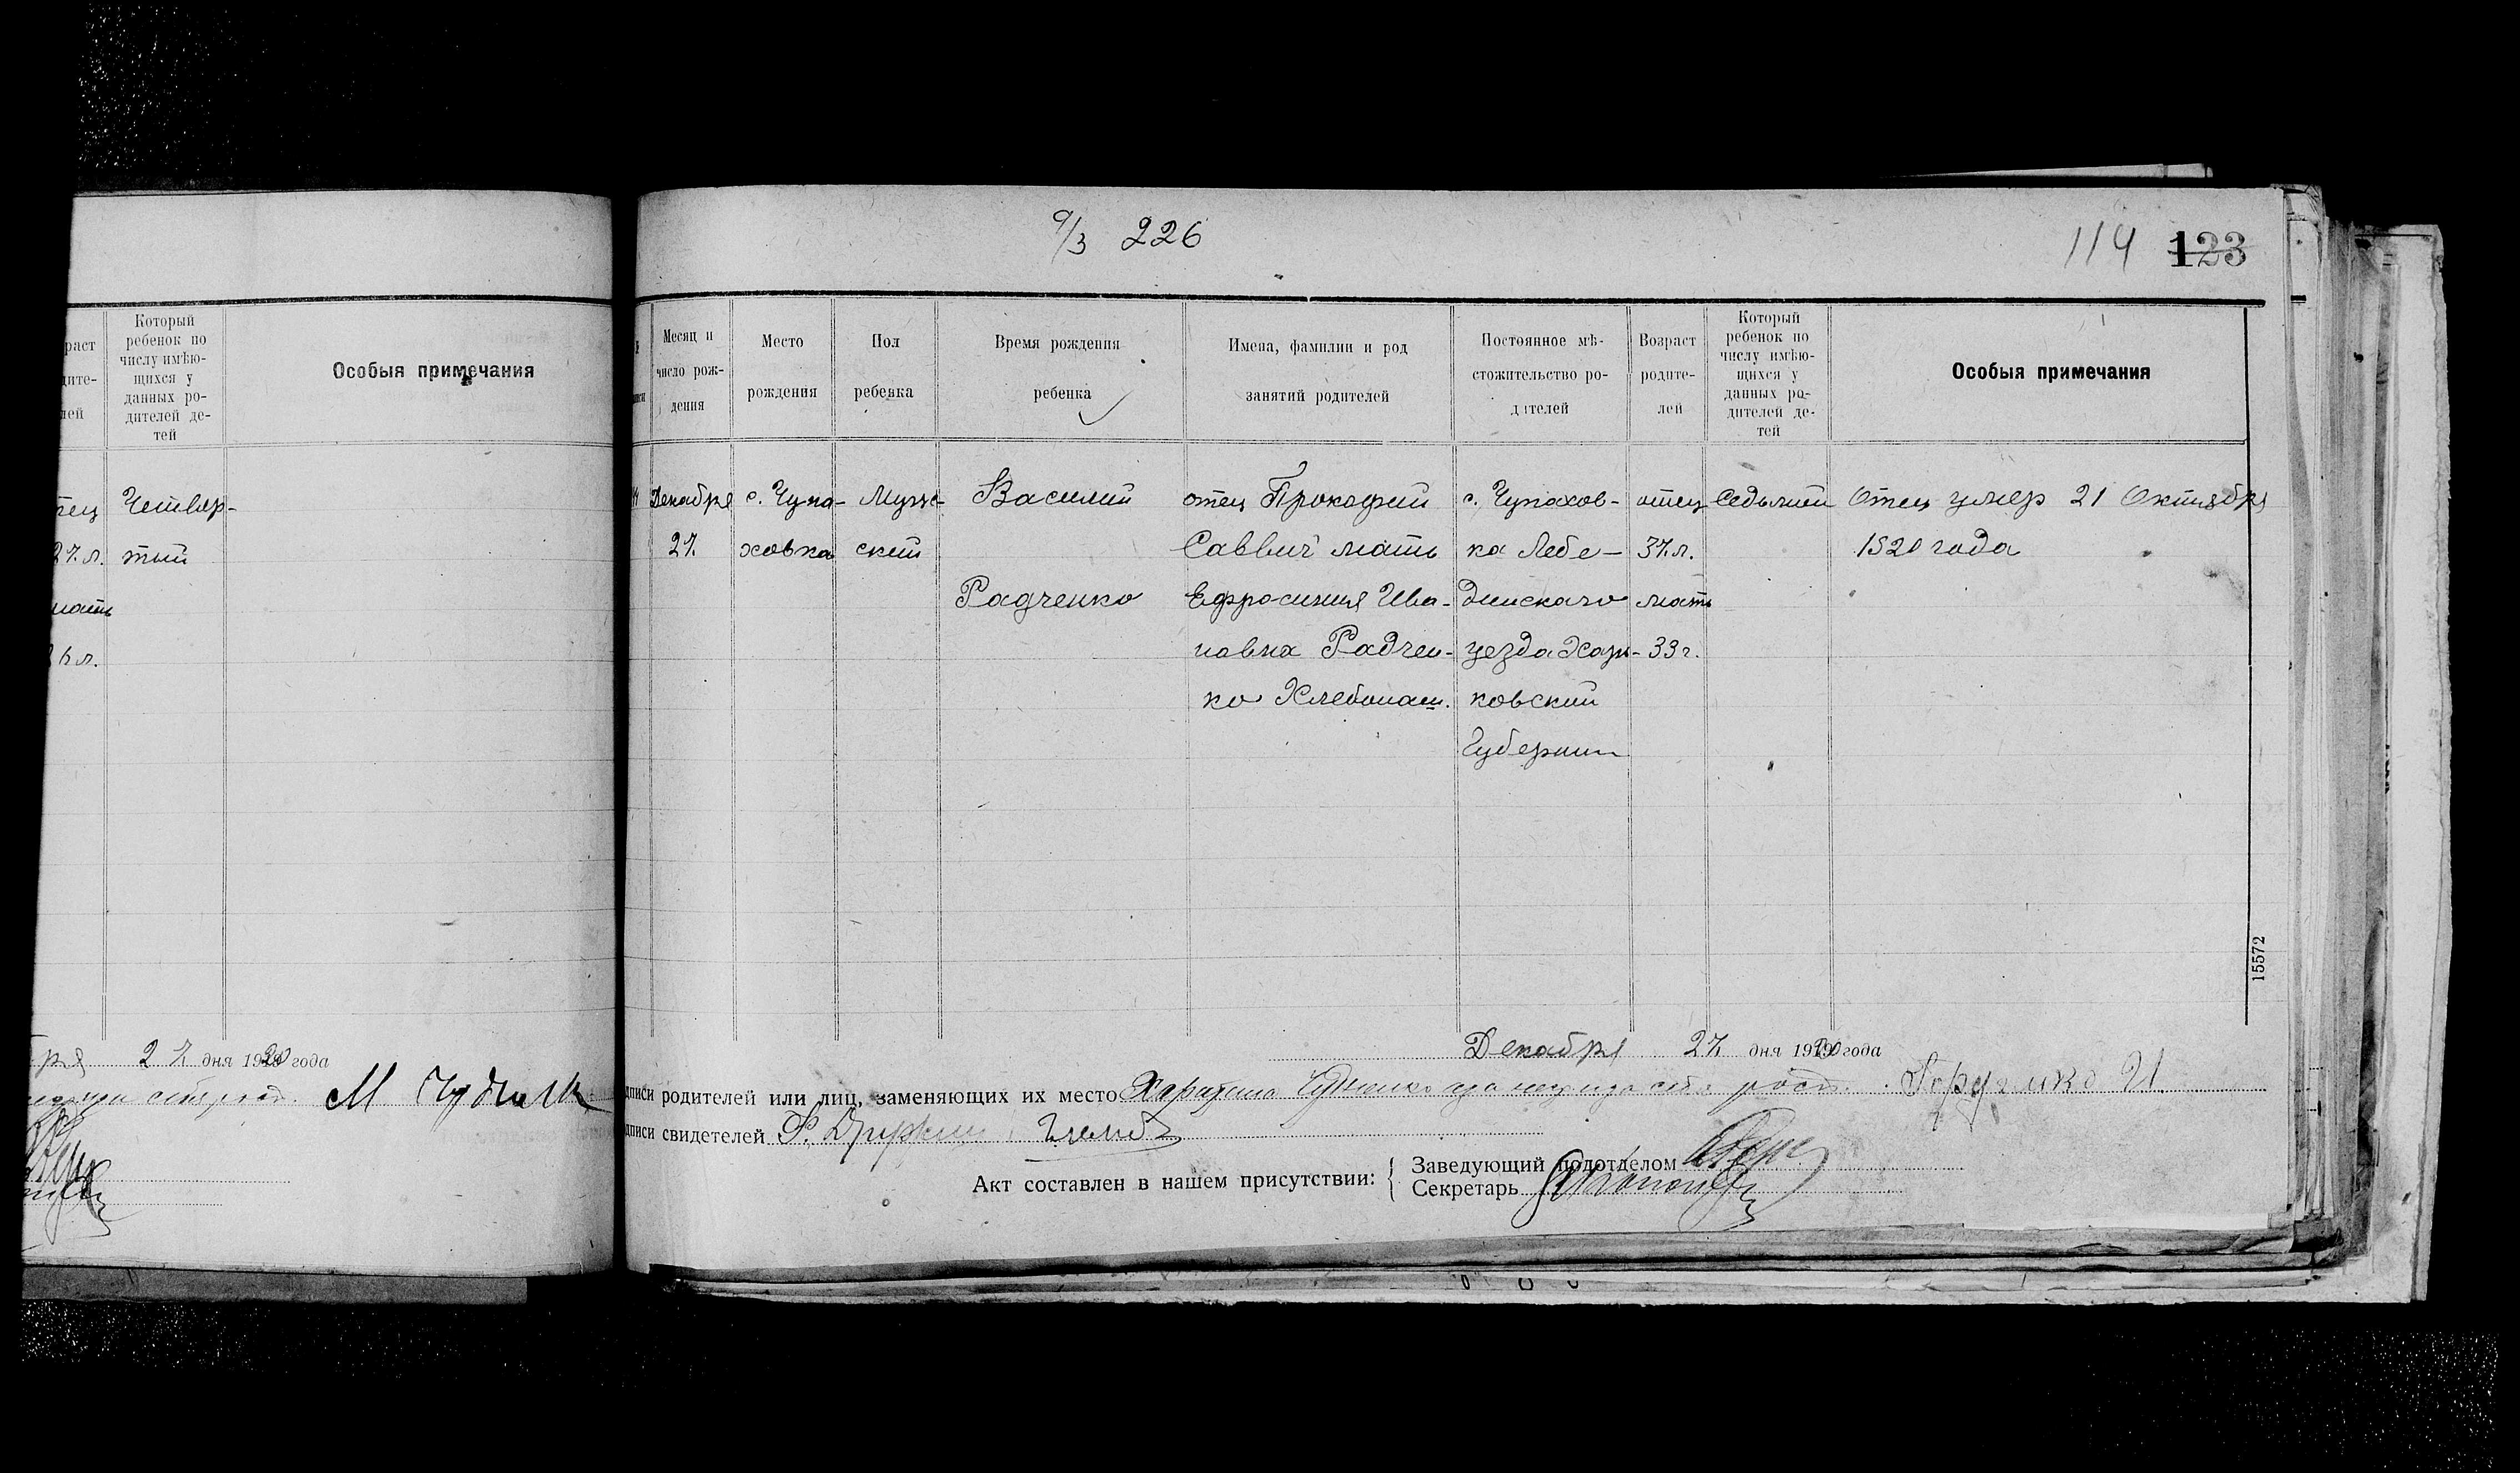 раст
дите-
лей
Который
ребенок по
числу имѣю-
щихся у
данных ро-
дителей де-
тей
Особыя примечания
Четвер-
27 л. тый
мать
дня 1920 года
9/3 226
114 123
Месяц и
число рож-
дения
Место
рождения
Пол
ребенка
Время рождения
ребенка
Имена, фамилии и род
занятий родителей
Постоянное мѣ-
стожительство ро-
дителей
Возраст
родите-
лей
Который
ребенок по
числу имѣю-
щихся у
данных ро-
дителей де-
тей
Особыя примечания
Декабря
27
с. Чупа-
ховка
Муж-
ский
Василий
Радченко
отец Прокофий
Саввич мать
Ефросиния Ива-
новна Радчен-
ко Хлебопаш.
с. Чупахов-
ка Лебе-
динскаго
уезда Харь-
ковский
Губернии
отец
37 л.
мать
33 г.
Седьмой
Отец умер 21 Октября
1920 года
15572
Декабря 27 дня 1920 года
дписи родителей или лиц, заменяющих их место
дписи свидетелей
Акт составлен в нашем присутствии:
Заведующий подотделом
Секретарь